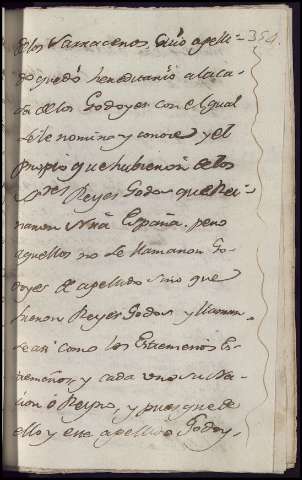 de los Sarracenos, Cuio apelli= 354.
do quedó hereditario a la ca-
sa de los Godoyes con el qual
se le nomina y conoce y el
propio que hubieron de los
Reyes Godos que Rei-
naron España, pero
aquellos no se llamaron Go-
doyes de apellido sino que
fueron Reyes Godos y llamaron
se asi como los Estremeños Es-
tremeños, y cada uno su Na-
cion ó Reyno, y pues que de
ello y ese apellido Godoy,